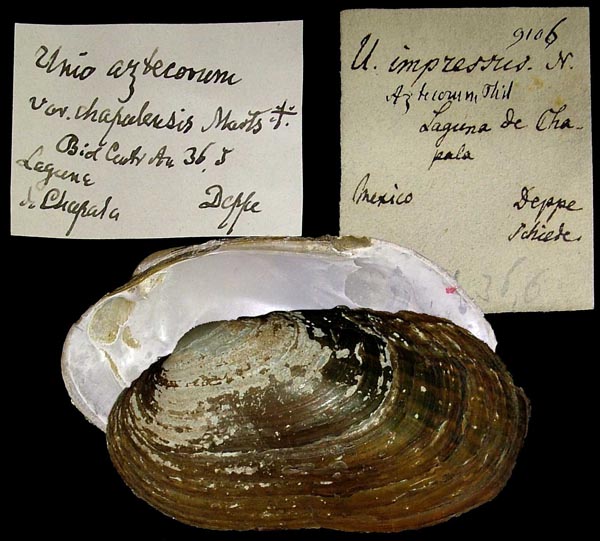 Unio aztecorum
var. chapalensis Marts †.
Biol Centr Am 36, 5
Laguna
de Chapala Deppe
9106
U. impressus. N.
Aztecorum Phil
Laguna de Cha-
pala
Mexico Deppe
Schiede.
36,6